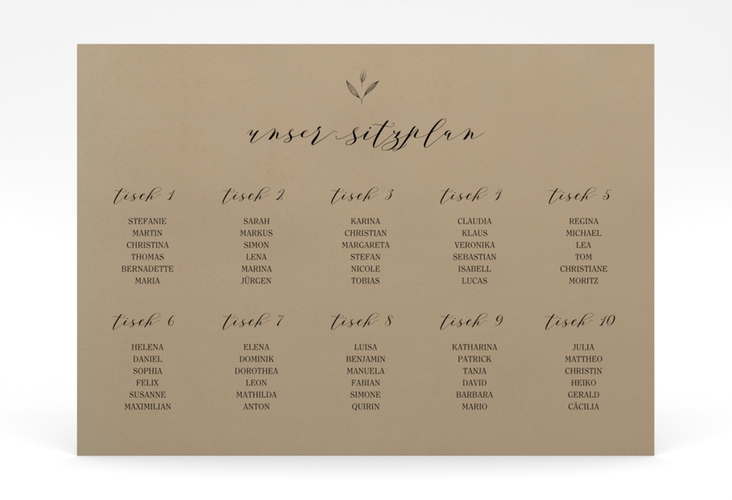 unser sitzplan
tisch 1
STEFANIE
MARTIN
CHRISTINA
THOMAS
BERNADETTE
MARIA
tisch 2
SARAH
MARKUS
SIMON
LENA
MARINA
JÜRGEN
tisch 3
KARINA
CHRISTIAN
MARGARETA
STEFAN
NICOLE
TOBIAS
tisch 4
CLAUDIA
KLAUS
VERONIKA
SEBASTIAN
ISABELL
LUCAS
tisch 5
REGINA
MICHAEL
LEA
TOM
CHRISTIANE
MORITZ
tisch 6
HELENA
DANIEL
SOPHIA
FELIX
SUSANNE
MAXIMILIAN
tisch 7
ELENA
DOMINIK
DOROTHEA
LEON
MATHILDA
ANTON
tisch 8
LUISA
BENJAMIN
MANUELA
FABIAN
SIMONE
QUIRIN
tisch 9
KATHARINA
PATRICK
TANJA
DAVID
BARBARA
MARIO
tisch 10
JULIA
MATTHEO
CHRISTIN
HEIKO
GERALD
CÄCILIA